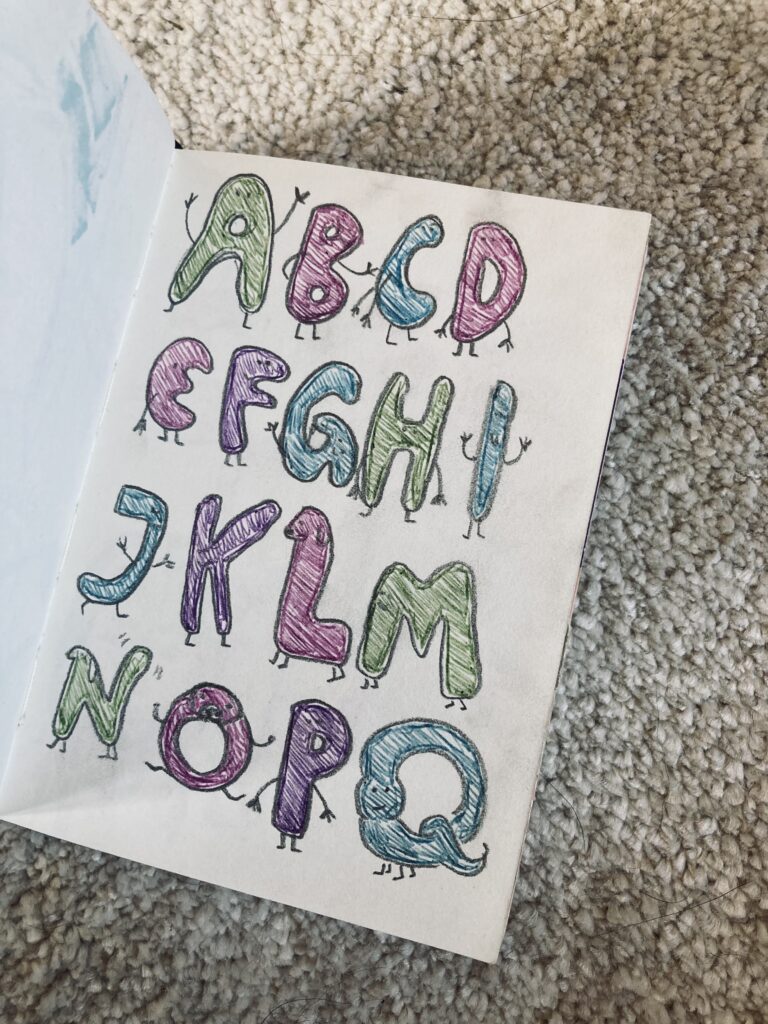 A B C D
E F G H I
J K L M
N O P Q